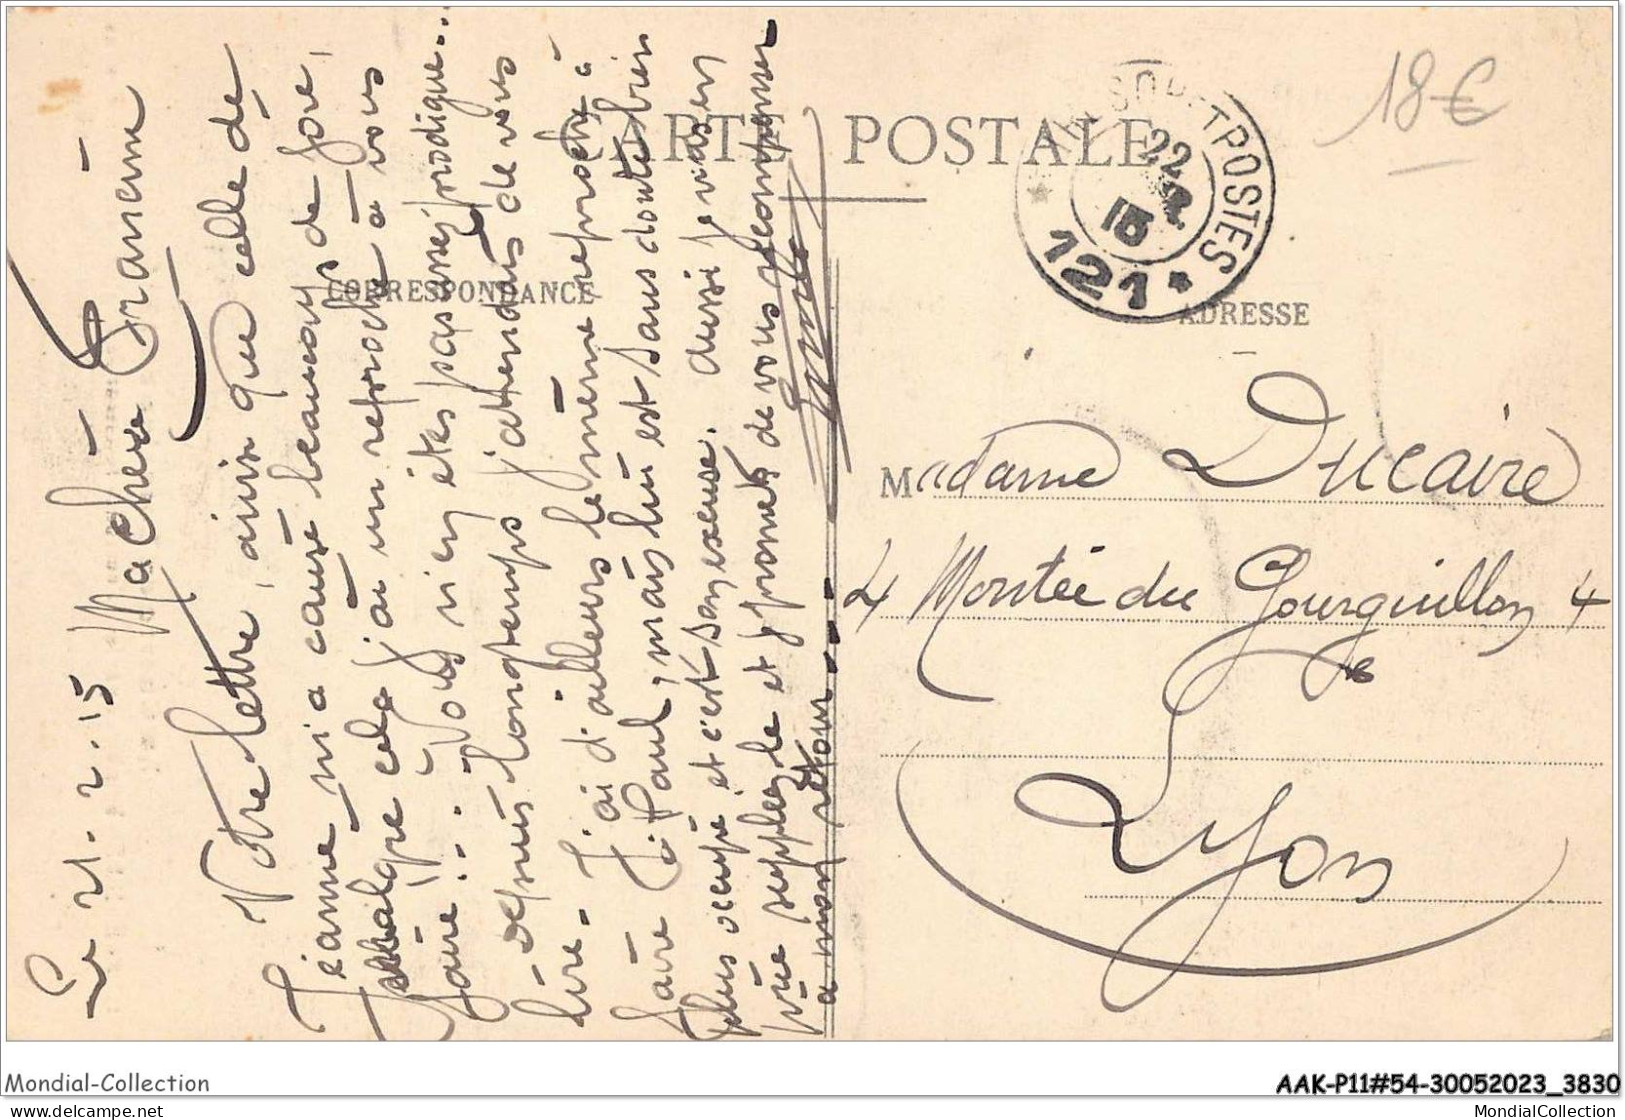 CARTE POSTALE
CORRESPONDANCE
ADRESSE
TRESOR ET POSTES
22
2
15
* 121 *
18€
Le 21.2.15 Ma chère Granem
Votre lettre, ainsi que celle de
Jeanne m'a causé beaucoup de joie,
malgré cela j'ai un reproche à vous
faire!... Vous n'en êtes pas assez prodigue...
depuis longtemps j'attendais de vous
lire. J'ai d'ailleurs le même reproche à
faire à Paul, mais lui est sans doute bien
plus occupé et c'est son excuse. Aussi je vais en
vous supplie et promets de vous récompenser
à mon retour
Madame Ducaire
4 Montée du Gourguillon 4
Lyon
Mondial-Collection
AAK-P11#54-30052023_3830
www.delcampe.net
MondialCollection